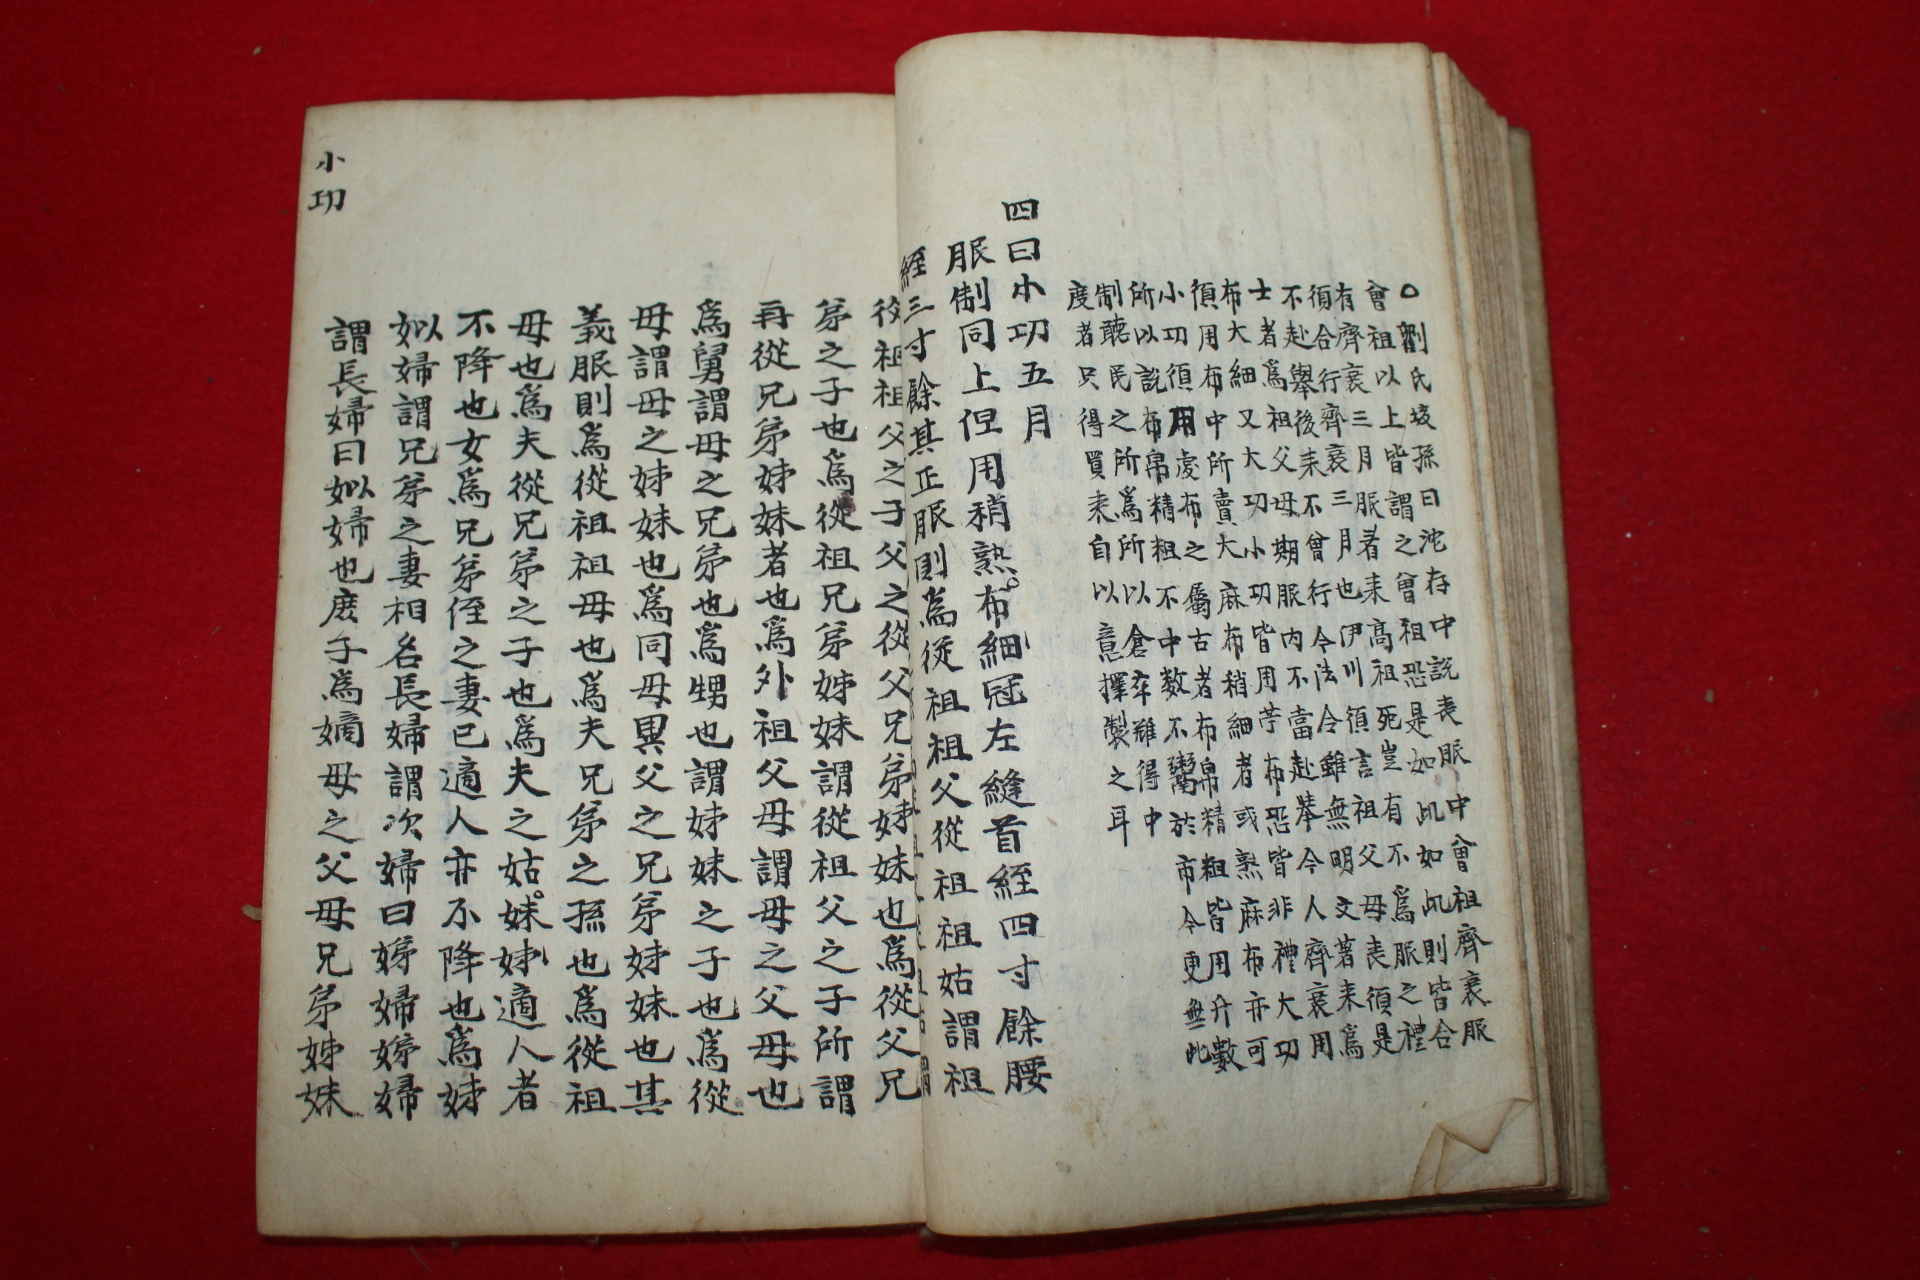 ○劉氏垓孫曰沈存中說喪服中曾祖齊衰服
曾祖以上皆謂之曾祖恐是如此如此則皆合
有齊衰三月服者来高祖死豈有不爲服之禮
須合行齊衰三月也伊川須言祖父母喪須是
不赴擧後来不曾行令法令雖無明文著来爲
士者爲祖父母期服内不當赴擧今人齊衰用
布大細又大功小功皆用苧布恐皆非禮大功
須用布中所賣大麻布稍細者或熟麻布亦可
小功須用虔布之屬古者布帛精粗皆用升數
所以說布帛精粗不中数不鬻於市今更無此
制聽民之所爲所以倉卒難得中
度者只得買来自以意擇製之耳
四曰小功五月
服制同上但用稍熟布細冠左縫首絰四寸餘腰
絰三寸餘其正服則爲從祖祖父從祖祖姑謂祖
從祖祖父之子父之從父兄弟姊妹也爲從父兄
弟之子也爲從祖兄弟姊妹謂從祖父之子所謂
再從兄弟姊妹者也爲外祖父母謂母之父母也
爲舅謂母之兄弟也爲甥也謂姊妹之子也爲從
母謂母之姊妹也爲同母異父之兄弟姊妹也其
義服則爲從祖祖母也爲夫兄弟之孫也爲從祖
母也爲夫從兄弟之子也爲夫之姑妹姊適人者
不降也女爲兄弟侄之妻已適人亦不降也爲娣
姒婦謂兄弟之妻相名長婦謂次婦曰娣婦娣婦
謂長婦曰姒婦也庶子爲嫡母之父母兄弟姊妹
小功